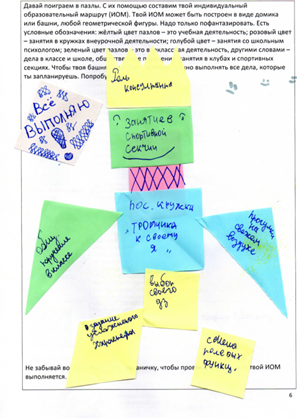 Давай поиграем в пазлы. С их помощью составим твой индивидуальный
образовательный маршрут (ИОМ). Твой ИОМ может быть построен в виде домика
или башни, любой геометрической фигуры. Надо только пофантазировать. Есть
условные обозначения: жёлтый цвет пазлов – это учебная деятельность; розовый цвет
– занятия в кружках внеурочной деятельности; голубой цвет – занятия со школьным
психологом; зеленый цвет пазлов – это внеклассная деятельность, другими словами –
дела в классе и школе, занятия в клубах и спортивных
секциях. Чтобы твоя башня выполнять все дела, которые
ты запланируешь. Попробу
Роль
консультанта
Всё
Выполняю
Занятие в
Спортивой
Секции
пос. кружки
"Тропинка
к своему
Я"
в классе
Прогулки
на
свежем
воздухе
выбор
своего
дз
задание
усложненного
характера
смена
ролевых
функц.
Не забывай во аничку, чтобы пров твой ИОМ
выполняется.
6